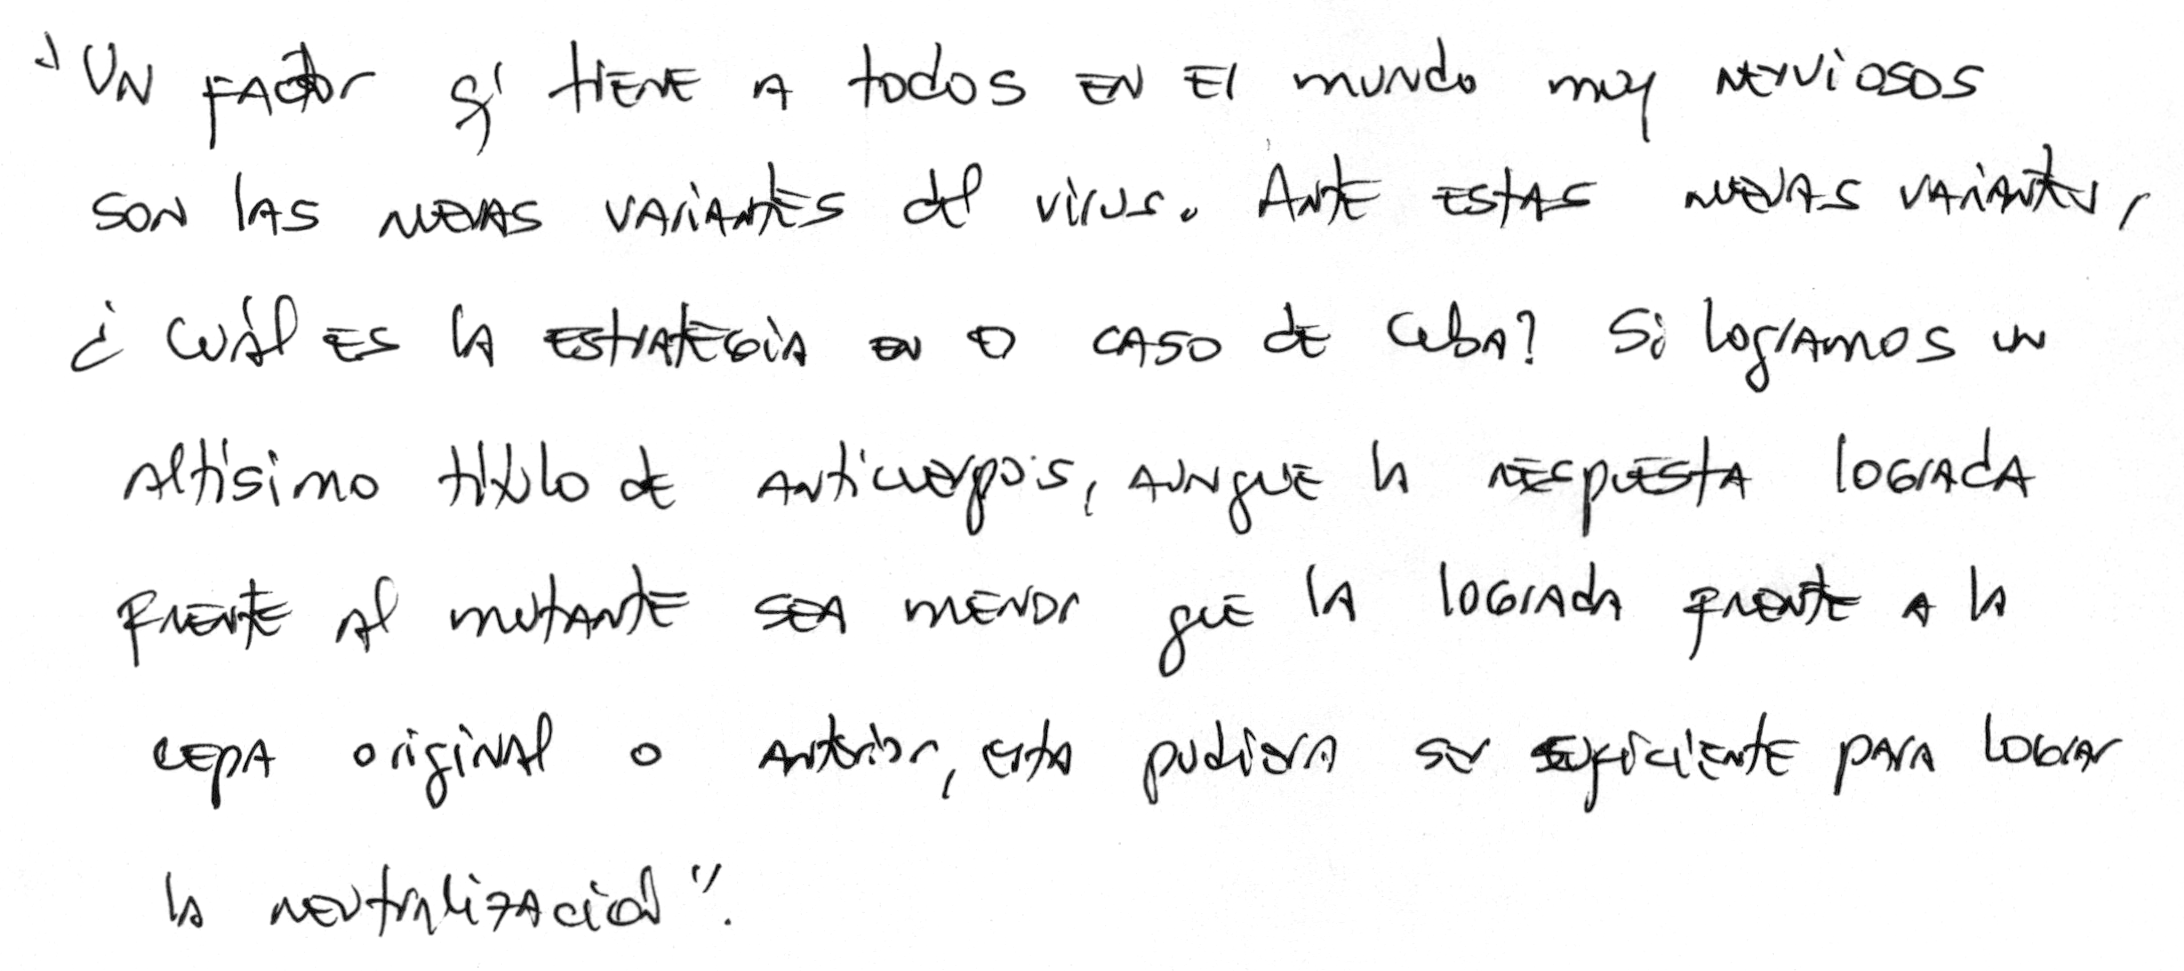 "Un factor q' tiene a todos en el mundo muy nerviosos
son las nuevas variantes del virus. Ante estas nuevas variantes,
¿cuál es la estrategia en el caso de Cuba? Si logramos un
altísimo título de anticuerpos, aunque la respuesta lograda
frente al mutante sea menor que la lograda frente a la
cepa original o anterior, esta pudiera ser suficiente para lograr
la neutralización".